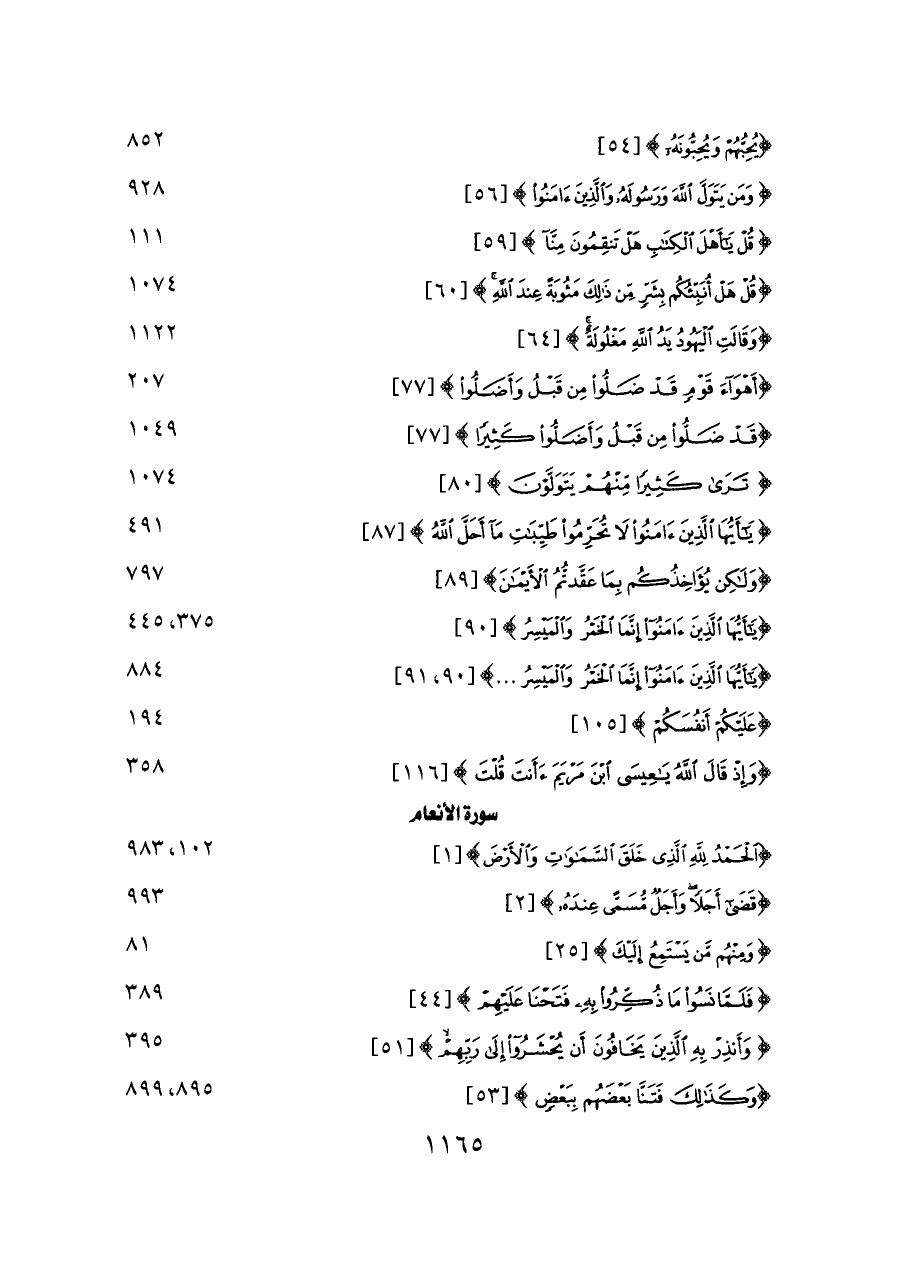 ﴿يُحِبُّهُمْ وَيُحِبُّونَهُۥ﴾ [٥٤] ٨٥٢
﴿وَمَن يَتَوَلَّ ٱللَّهَ وَرَسُولَهُۥ وَٱلَّذِينَ ءَامَنُوا۟﴾ [٥٦] ٩٢٨
﴿قُلْ يَـٰٓأَهْلَ ٱلْكِتَـٰبِ هَلْ تَنقِمُونَ مِنَّآ﴾ [٥٩] ١١١
﴿قُلْ هَلْ أُنَبِّئُكُم بِشَرٍّ مِّن ذَٰلِكَ مَثُوبَةً عِندَ ٱللَّهِ ۚ﴾ [٦٠] ١٠٧٤
﴿وَقَالَتِ ٱلْيَهُودُ يَدُ ٱللَّهِ مَغْلُولَةٌ ۚ﴾ [٦٤] ١١٢٢
﴿أَهْوَآءَ قَوْمٍ قَدْ ضَلُّوا۟ مِن قَبْلُ وَأَضَلُّوا۟﴾ [٧٧] ٢٠٧
﴿قَدْ ضَلُّوا۟ مِن قَبْلُ وَأَضَلُّوا۟ كَثِيرًا﴾ [٧٧] ١٠٤٩
﴿تَرَىٰ كَثِيرًا مِّنْهُمْ يَتَوَلَّوْنَ﴾ [٨٠] ١٠٧٤
﴿يَـٰٓأَيُّهَا ٱلَّذِينَ ءَامَنُوا۟ لَا تُحَرِّمُوا۟ طَيِّبَـٰتِ مَآ أَحَلَّ ٱللَّهُ﴾ [٨٧] ٤٩١
﴿وَلَـٰكِن يُؤَاخِذُكُم بِمَا عَقَّدتُّمُ ٱلْأَيْمَـٰنَ﴾ [٨٩] ٧٩٧
﴿يَـٰٓأَيُّهَا ٱلَّذِينَ ءَامَنُوٓا۟ إِنَّمَا ٱلْخَمْرُ وَٱلْمَيْسِرُ﴾ [٩٠] ٣٧٥، ٤٤٥
﴿يَـٰٓأَيُّهَا ٱلَّذِينَ ءَامَنُوٓا۟ إِنَّمَا ٱلْخَمْرُ وَٱلْمَيْسِرُ ...﴾ [٩٠، ٩١] ٨٨٤
﴿عَلَيْكُمْ أَنفُسَكُمْ﴾ [١٠٥] ١٩٤
﴿وَإِذْ قَالَ ٱللَّهُ يَـٰعِيسَى ٱبْنَ مَرْيَمَ ءَأَنتَ قُلْتَ﴾ [١١٦] ٣٥٨
سورة الأنعام
﴿ٱلْحَمْدُ لِلَّهِ ٱلَّذِى خَلَقَ ٱلسَّمَـٰوَٰتِ وَٱلْأَرْضَ﴾ [١] ١٠٢، ٩٨٣
﴿قَضَىٰٓ أَجَلًا ۖ وَأَجَلٌ مُّسَمًّى عِندَهُۥ﴾ [٢] ٩٩٣
﴿وَمِنْهُم مَّن يَسْتَمِعُ إِلَيْكَ﴾ [٢٥] ٨١
﴿فَلَمَّا نَسُوا۟ مَا ذُكِّرُوا۟ بِهِۦ فَتَحْنَا عَلَيْهِمْ﴾ [٤٤] ٣٨٩
﴿وَأَنذِرْ بِهِ ٱلَّذِينَ يَخَافُونَ أَن يُحْشَرُوٓا۟ إِلَىٰ رَبِّهِمْ ۙ﴾ [٥١] ٣٩٥
﴿وَكَذَٰلِكَ فَتَنَّا بَعْضَهُم بِبَعْضٍ﴾ [٥٣] ٨٩٥، ٨٩٩
١١٦٥